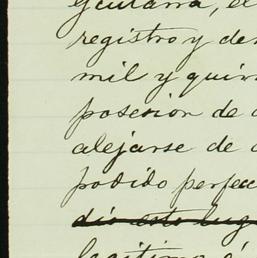 registro y de
mil y quin
posesion de
alejarse de
podido perfec
dió esto lug